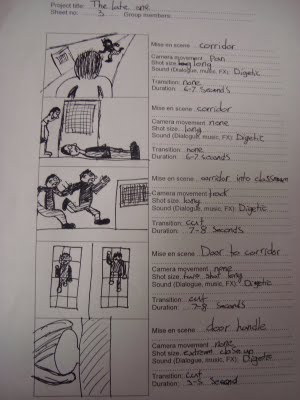 Project title: The late one
Sheet no: 3 Group members:
Mise en scene: corridor
Camera movement pan
Shot size: long
Sound (Dialogue, music, FX) Digetic
Transition: none
Duration: 6-7 Seconds
Mise en scene: corridor
Camera movement none
Shot size: long
Sound (Dialogue, music, FX): Digetic
Transition: none
Duration: 6-7 Seconds
Mise en scene: corridor into classroom
Camera movement
Shot size: long
Sound (Dialogue, music, FX): Digetic
Transition: cut
Duration: 7-8 Seconds
Mise en scene: Door to corridor
Camera movement: none
Shot size: long
Sound (Dialogue, music, FX): Digetic
Transition: cut
Duration: 7-8 Seconds
Mise en scene: door handle
Camera movement: none
Shot size: extreme close up
Sound (Dialogue, music, FX): Digetic
Transition: cut
Duration: 3-5 Second